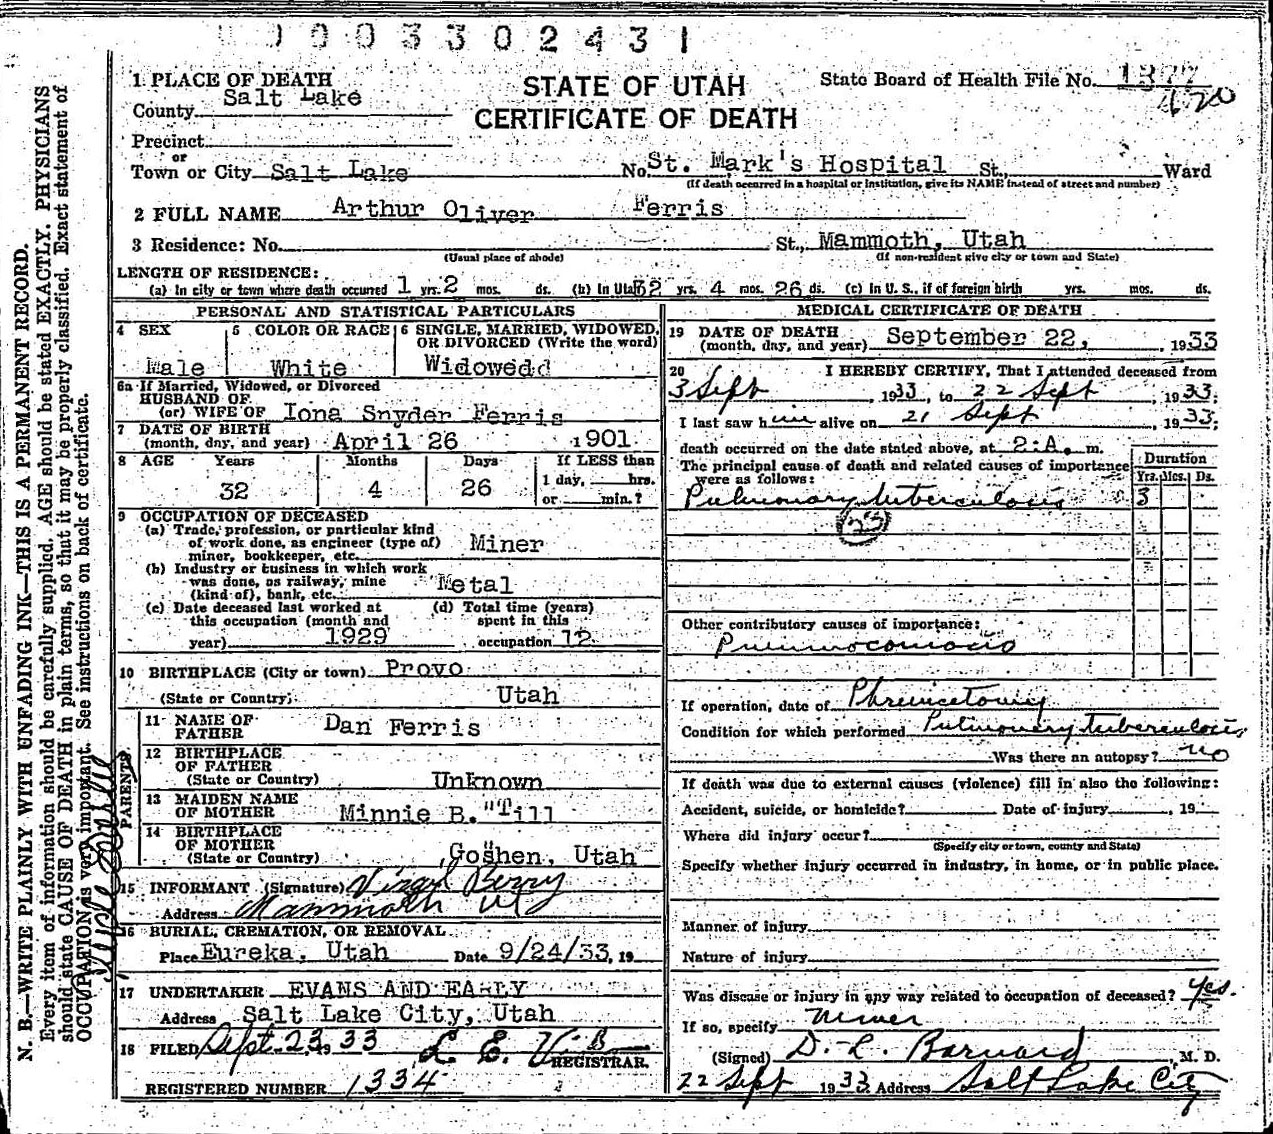 0003302431
1 PLACE OF DEATH
STATE OF UTAH
CERTIFICATE OF DEATH
State Board of Health File No. 1377
420
County Salt Lake
Precinct
or
Town or City Salt Lake No. St. Mark's Hospital St., Ward
(If death occurred in a hospital or institution, give its NAME instead of street and number)
2 FULL NAME Arthur Oliver Ferris
3 Residence: No. St., Mammoth, Utah
(Usual place of abode) (If non-resident give city or town and State)
LENGTH OF RESIDENCE:
(a) In city or town where death occurred 1 yrs. 2 mos. ds. (b) In Utah 32 yrs. 4 mos. 26 ds. (c) In U. S., if of foreign birth yrs. mos. ds.
PERSONAL AND STATISTICAL PARTICULARS
4 SEX 5 COLOR OR RACE 6 SINGLE, MARRIED, WIDOWED, OR DIVORCED (Write the word)
Male White Widowedd
6a If Married, Widowed, or Divorced
HUSBAND OF
(or) WIFE OF Iona Snyder Ferris
7 DATE OF BIRTH
(month, day, and year) April 26 1901
8 AGE Years Months Days If LESS than
1 day, hrs.
32 4 26 or min.?
9 OCCUPATION OF DECEASED
(a) Trade, profession, or particular kind
of work done, as engineer (type of)
miner, bookkeeper, etc. Miner
(b) Industry or business in which work
was done, as railway, mine
(kind of), bank, etc. Metal
(c) Date deceased last worked at
this occupation (month and
year) 1929
(d) Total time (years)
spent in this
occupation 12
10 BIRTHPLACE (City or town) Provo
(State or Country) Utah
PARENTS
11 NAME OF
FATHER Dan Ferris
12 BIRTHPLACE
OF FATHER
(State or Country) Unknown
13 MAIDEN NAME
OF MOTHER Minnie B. "Till
14 BIRTHPLACE
OF MOTHER
(State or Country) Goshen, Utah
15 INFORMANT (Signature) Virgil Berry
Address Mammoth Ut
16 BURIAL, CREMATION, OR REMOVAL
Place Eureka, Utah Date 9/24/33, 19
17 UNDERTAKER EVANS AND EARLY
Address Salt Lake City, Utah
18 FILED Sept. 23, 19 33
REGISTRAR.
REGISTERED NUMBER 1334
MEDICAL CERTIFICATE OF DEATH
19 DATE OF DEATH
(month, day, and year) September 22, 1933
20 I HEREBY CERTIFY, That I attended deceased from
3 Sept, 1933, to 22 Sept, 1933;
I last saw him alive on 21 Sept, 1933;
death occurred on the date stated above, at 2:A. m.
The principal cause of death and related causes of importance
were as follows:
Duration
Yrs. Mos. Ds.
Pulmonary tuberculosis 3
23
Other contributory causes of importance:
Pneumoconiosis
If operation, date of Phrenicetomy
Condition for which performed Pulmonary tuberculosis
Was there an autopsy? no
If death was due to external causes (violence) fill in also the following:
Accident, suicide, or homicide? Date of injury, 19
Where did injury occur?
(Specify city or town, county and State)
Specify whether injury occurred in industry, in home, or in public place.
Manner of injury
Nature of injury
Was disease or injury in any way related to occupation of deceased? Yes.
If so, specify Miner
(Signed) D. L. Barnard, M. D.
22 Sept 1933 Address Salt Lake City
N. B.—WRITE PLAINLY WITH UNFADING INK—THIS IS A PERMANENT RECORD.
Every item of information should be carefully supplied. AGE should be stated EXACTLY. PHYSICIANS
should state CAUSE OF DEATH in plain terms, so that it may be properly classified. Exact statement of
OCCUPATION is very important. See instructions on back of certificate.